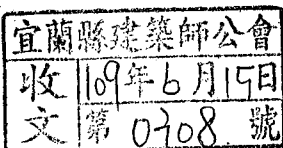 宜蘭縣建築師公會
收文
109年6月15日
第 0708 號